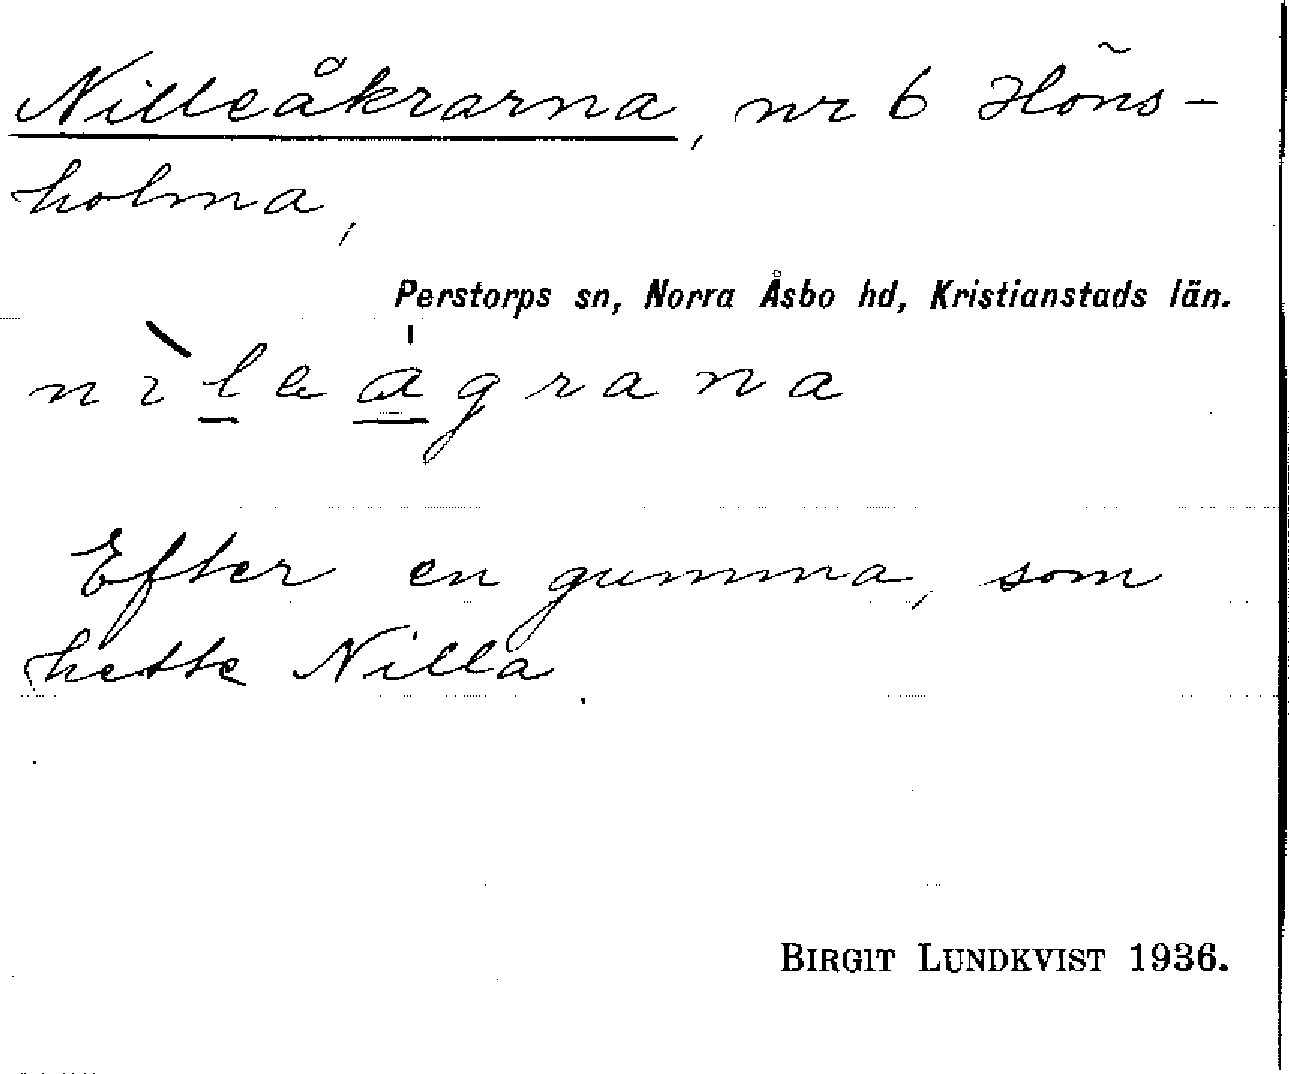 Nilleåkrarna, nr 6 Höns-
holma,
Perstorps sn, Norra Åsbo hd, Kristianstads län.
Efter en gumma, som
hette Nilla.
BIRGIT LUNDKVIST 1936.